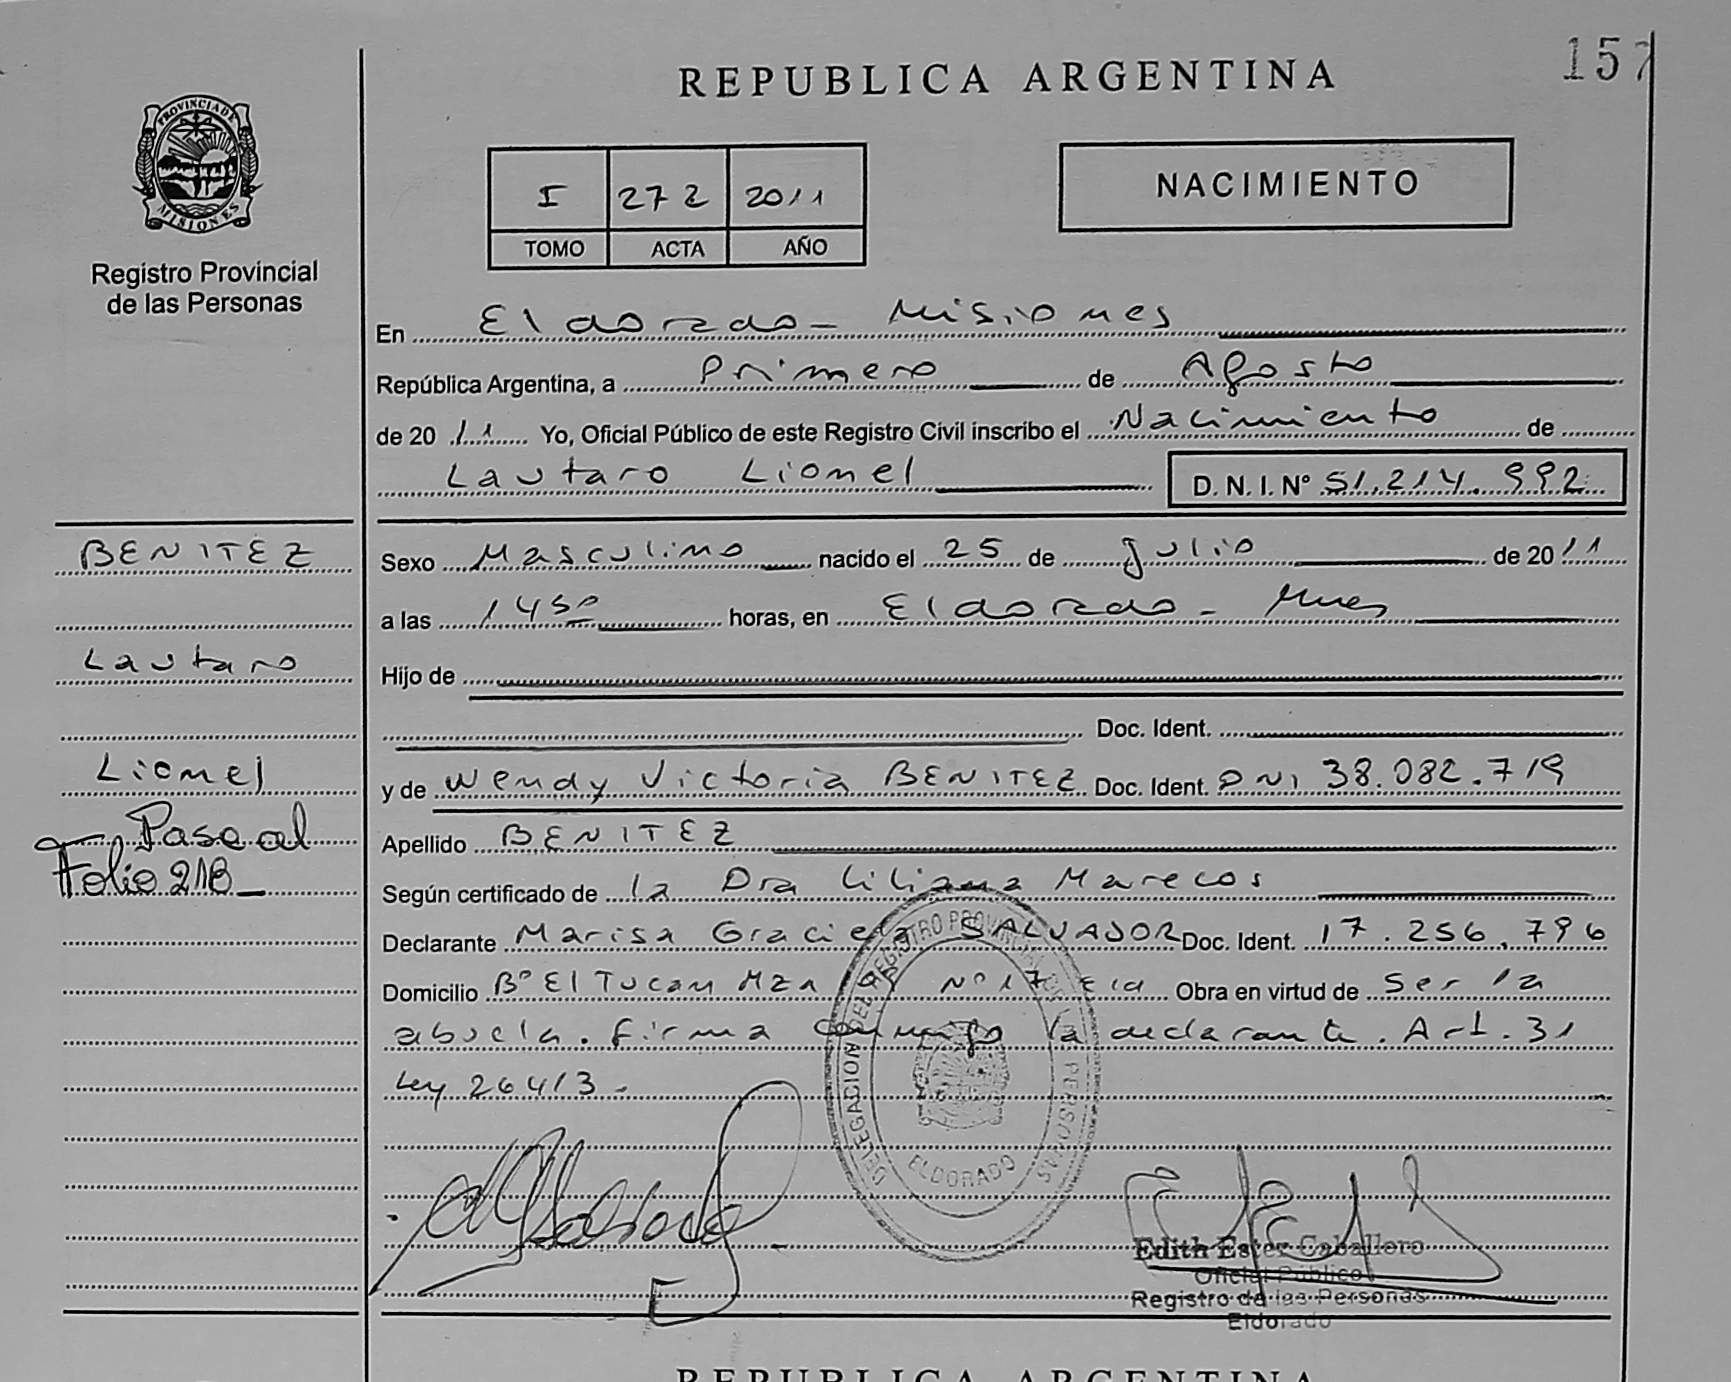 REPUBLICA ARGENTINA
157
PROVINCIA DE
MISIONES
Registro Provincial
de las Personas
I 272 2011
TOMO ACTA AÑO
NACIMIENTO
En Eldorado - Misiones
República Argentina, a Primero de Agosto
de 2011 Yo, Oficial Público de este Registro Civil inscribo el Nacimiento de
Lautaro Lionel D.N.I. Nº 51.214.992
BENITEZ
Lautaro
Lionel
Pascual
Folio 21B
Sexo Masculino nacido el 25 de Julio de 2011
a las 14 30 horas, en Eldorado - Mnes
Hijo de
Doc. Ident.
y de Wendy Victoria BENITEZ Doc. Ident. DNI 38.082.719
Apellido BENITEZ
Según certificado de la Dra Liliana Marecos
Declarante Marisa Graciela SALVADOR Doc. Ident. 17.256.796
Domicilio Bº El Tucan Mza Nº 17 Obra en virtud de ser la
abuela. firma conmigo la declarante. Art. 31
Ley 26413 -
DELEGACION DEL REGISTRO PROVINCIAL DE LAS PERSONAS
ELDORADO
Edith Ester Caballero
Oficial Público
Registro de las Personas
Eldorado
REPUBLICA ARGENTINA